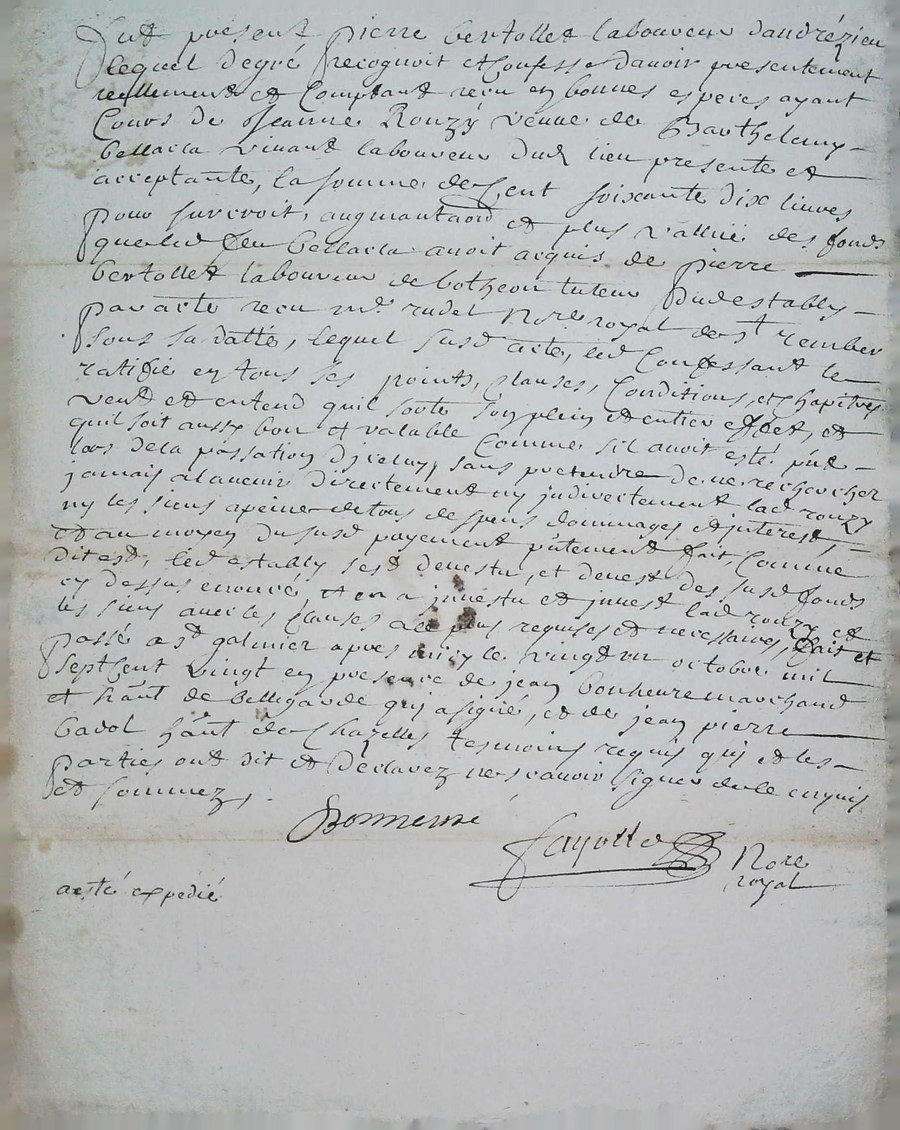 fut present pierre bertollet laboureur dandrézieu
lequel de gré recognoit et Confesse davoir presentement
reellement et Comptant receu en bonnes especes ayant
Cours de Jeanne Rouzy veuve de Barthelemy
bellacla vivant laboureur dud lieu presente et
acceptante, la somme de Cent soixante dix livres
pour surcroit, augmantaon et plus vallüe des fonds
que led feu bellacla avoit acquis de pierre
bertollet laboureur de botheon tuteur dud estably
par acte receu me rudel Nore royal de st rember
sous sa datte, lequel susd acte, led Confessant le
ratifie en tous ses points, clauses, Conditions, et chapitres
veut et entend quil sorte son plein et entier effet, et
quil soit aussy bon et valable Comme sil avoit esté pnt
lors de la passation diceluy, sans pretendre de ne rechercher
jamais a lavenir directement ny indirectement lad rouzy
ny les siens a peine de tous despens dommages et interest,
et au moyen du susd payement pntement fait, Comme
dit est, led estably sest devestu, et devest des susd fonds
cy dessus enoncé et en a investu et invest lad rouzy et
les siens avec les clauses a ce plus requises et necessaires, fait et
passé a st galmier apres midy le vingt octobre mil
sept Cent vingt en presence de jean bonheure marchand
et hant de bellegarde qui a signé, et de jean pierre
badol hant de Chazelles tesmoins requis qui et les
parties ont dit et declarez ne scavoir signer de ce enquis
et sommez,
fayolle Nore
royal
a esté expedié